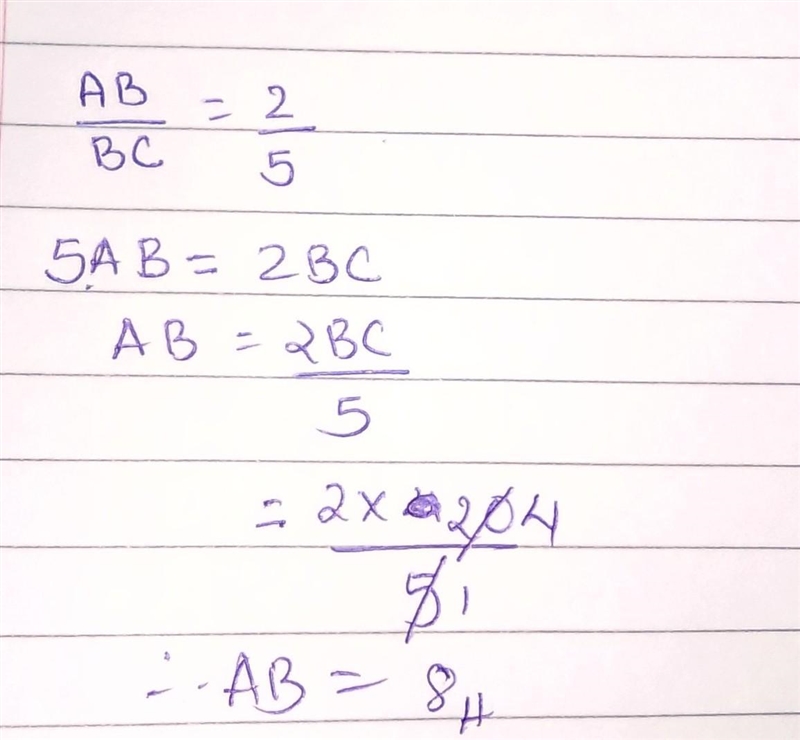 AB/BC = 2/5
5AB = 2BC
AB = 2BC/5
= 2x 20 4/5 1
∴ AB = 8//